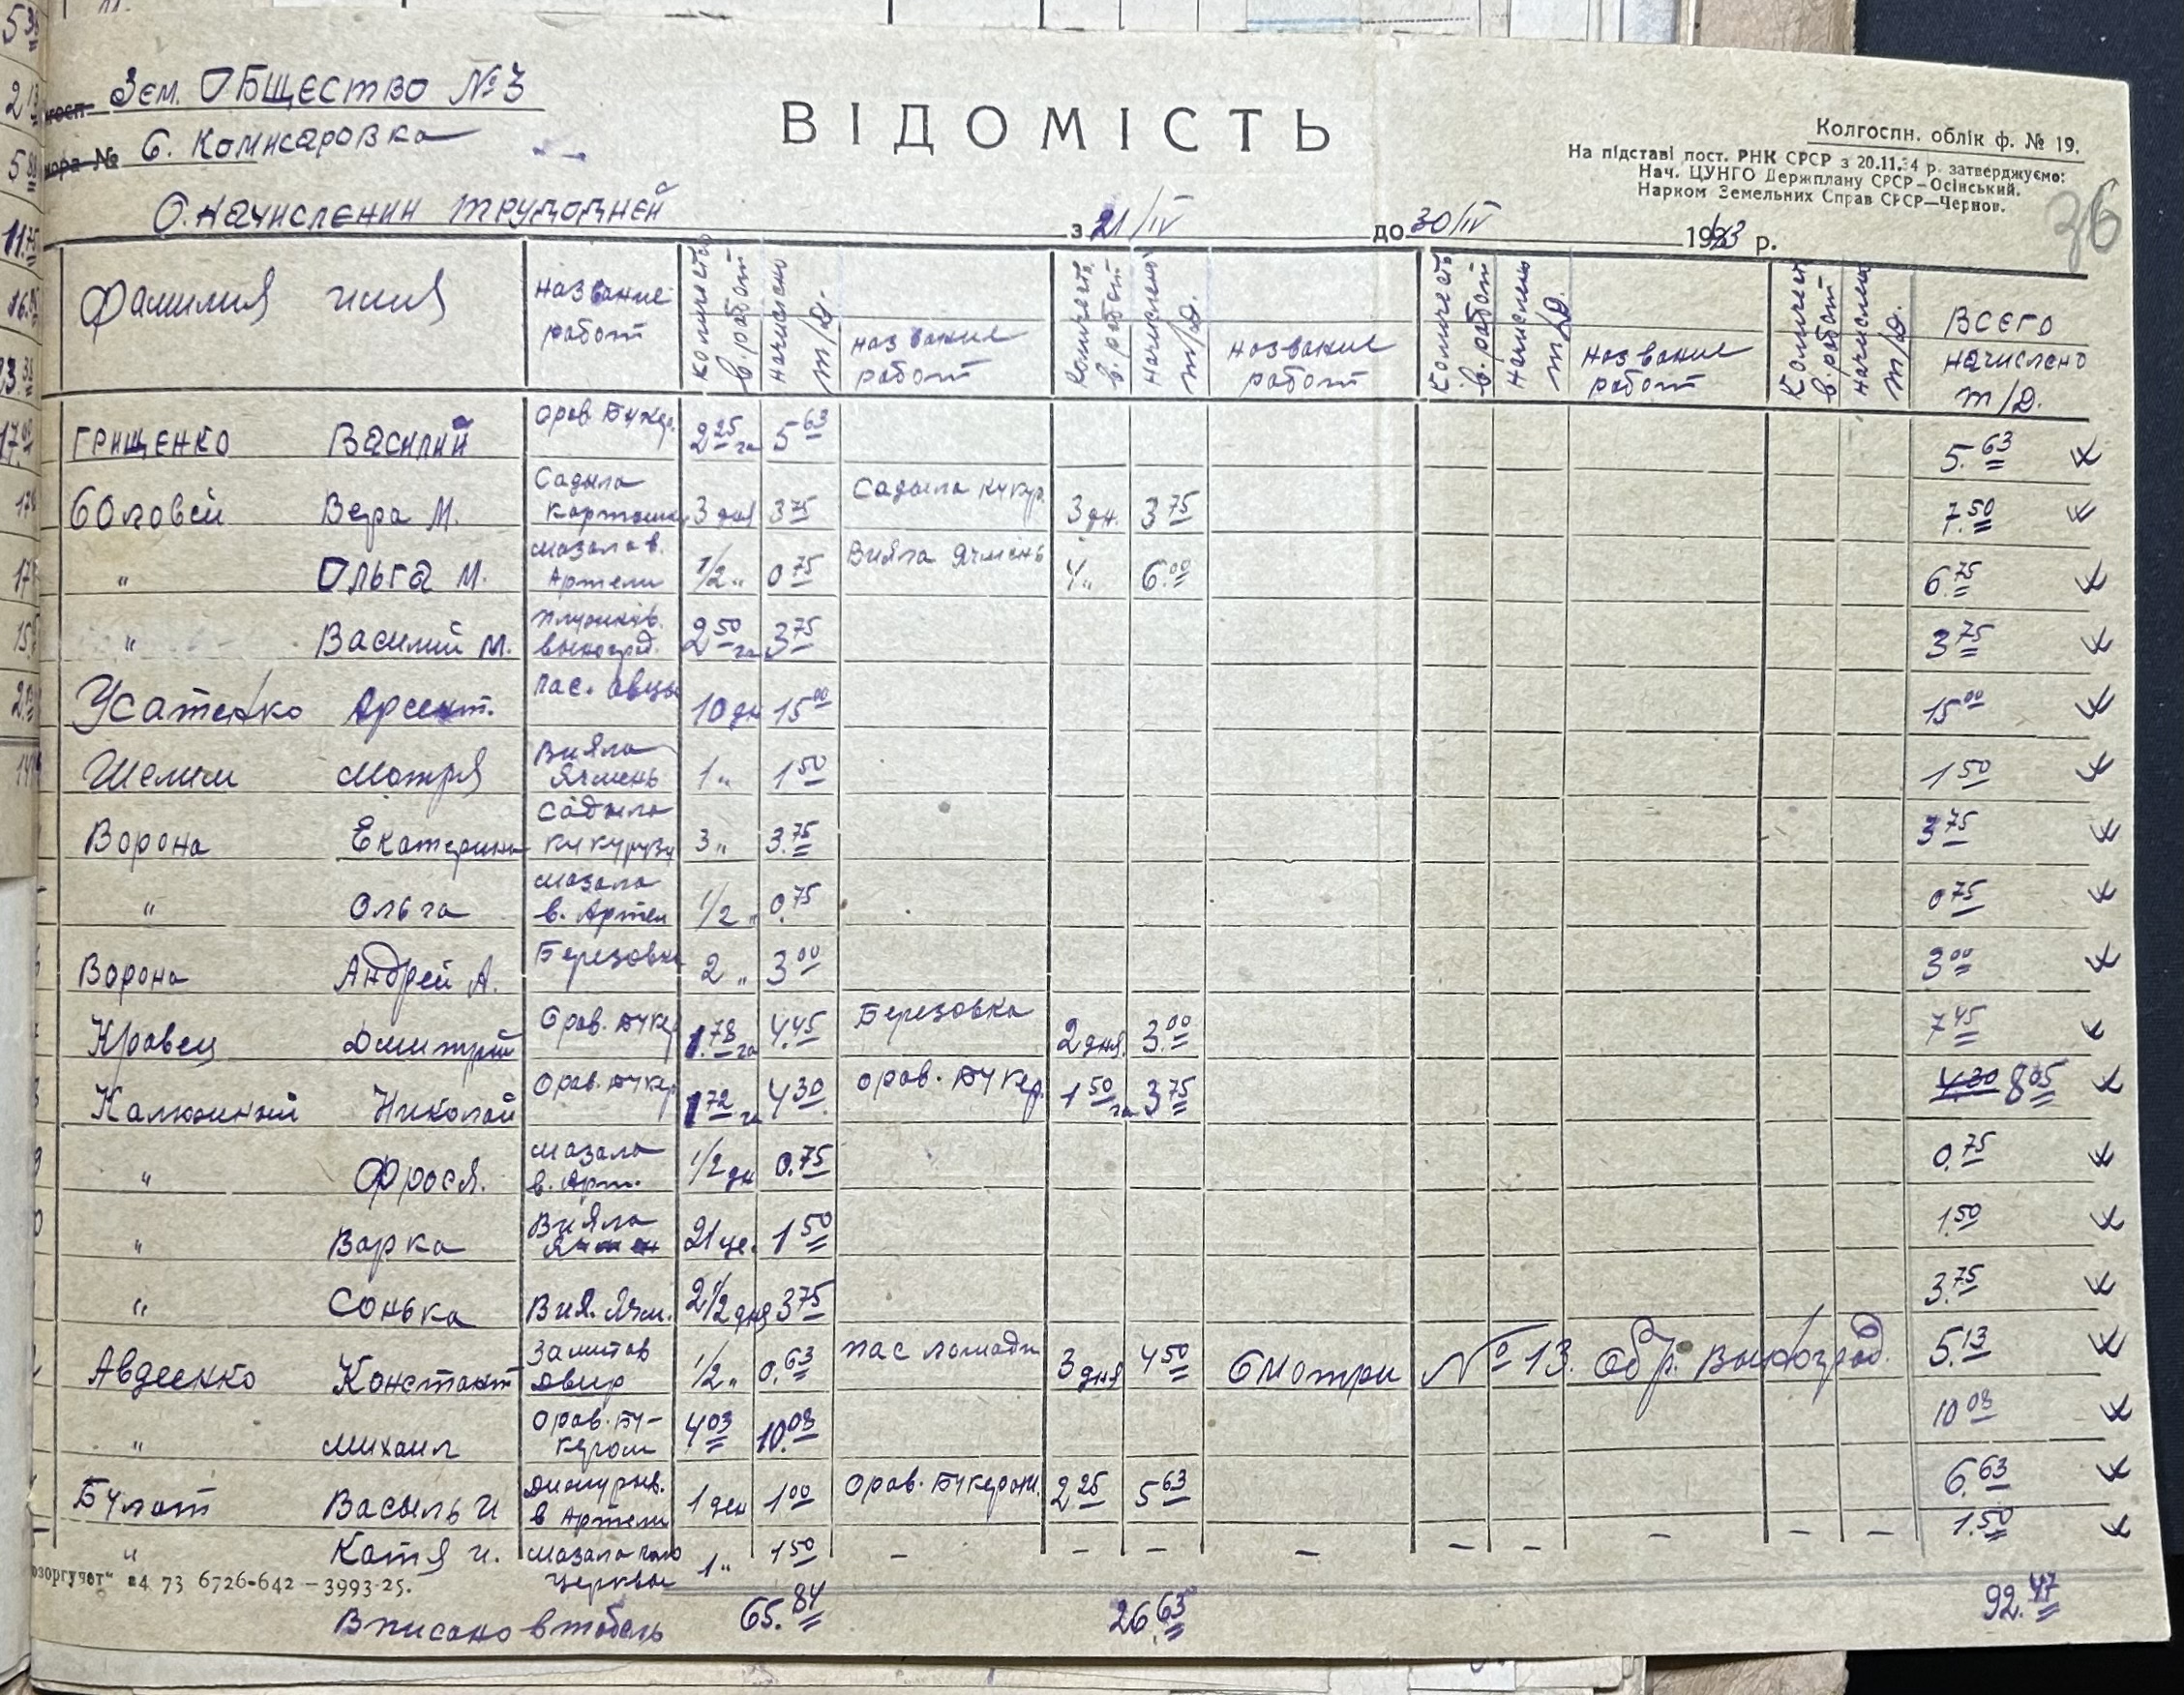 Зем. Общество № 3
с. Комисаровка
ВІДОМІСТЬ
Колгоспн. облік ф. № 19.
На підставі пост. РНК СРСР з 20.11.34 р. затверджуємо:
Нач. ЦУНГО Держплану СРСР—Осінський.
Нарком Земельних Справ СРСР—Чернов.
36
О. начислении трудодней з 21/IV до 30/IV 1943 р.
Фамилия имя название работ количеств в. работ начислено т/д. название работ количеств в. работ начислено т/д. название работ количеств в. работ начислено т/д. название работ количеств в. работ начислено т/д. всего начислено т/д.
Грищенко Василий орав. Букер. 2 25 га 5 63 5.63
Соловей Вера М. Садыла картошку 3 дня 3 75 Садыла кукур. 3 дн. 3 75 7.50
" Ольга М. мазала в. Артели 1/2 " 0 75 Вияла Ячмень 4 " 6.00 6 75
" Василий М. виноград. 2 50 га 3 75 3 75
Усатенко Арсент. пас. овцы 10 дн 15 00 15 00
Шелим Мотря Вияла Ячмень 1 " 1 50 1 50
Ворона Екатерина Садыла кукурузу 3 " 3.75 3 75
" Ольга мазала в. Артел 1/2 " 0.75 0 75
Ворона Андрей А. Березовка 2 " 3 00 3 00
Кравец Дмитрий Орав. Букер 1.78 га 4.45 Березовка 2 дня 3.00 7 45
Калюжний Николай Орав. Букер 1 72 га 4 30 орав. Букер. 1 50 га 3 75 4.30 8 05
" Фрося. мазала в. Арт. 1/2 дн 0.75 0.75
" Варка Вияла Ячмен 21 це. 1 50 1.50
" Сонька Вия. Ячм. 2 1/2 дня 3 75 3.75
Авдеенко Констант Двир 1/2 " 0.63 пас лошади 3 дня 4 50 Смотри № 13. обр. виноград. 5.13
" Михаил Орав. Букером 4 03 10.08 10 08
Булат Васыль И в Артели 1 ден 1 00 Орав. Букером. 2 25 5 63 6.63
" Катя И. мазала церковь 1 " 1 50 – – – – – – – – – 1.50
озоргучет" 24 73 6726-642 — 3993-25.
Вписано в табель 65.84 26.63 92.47